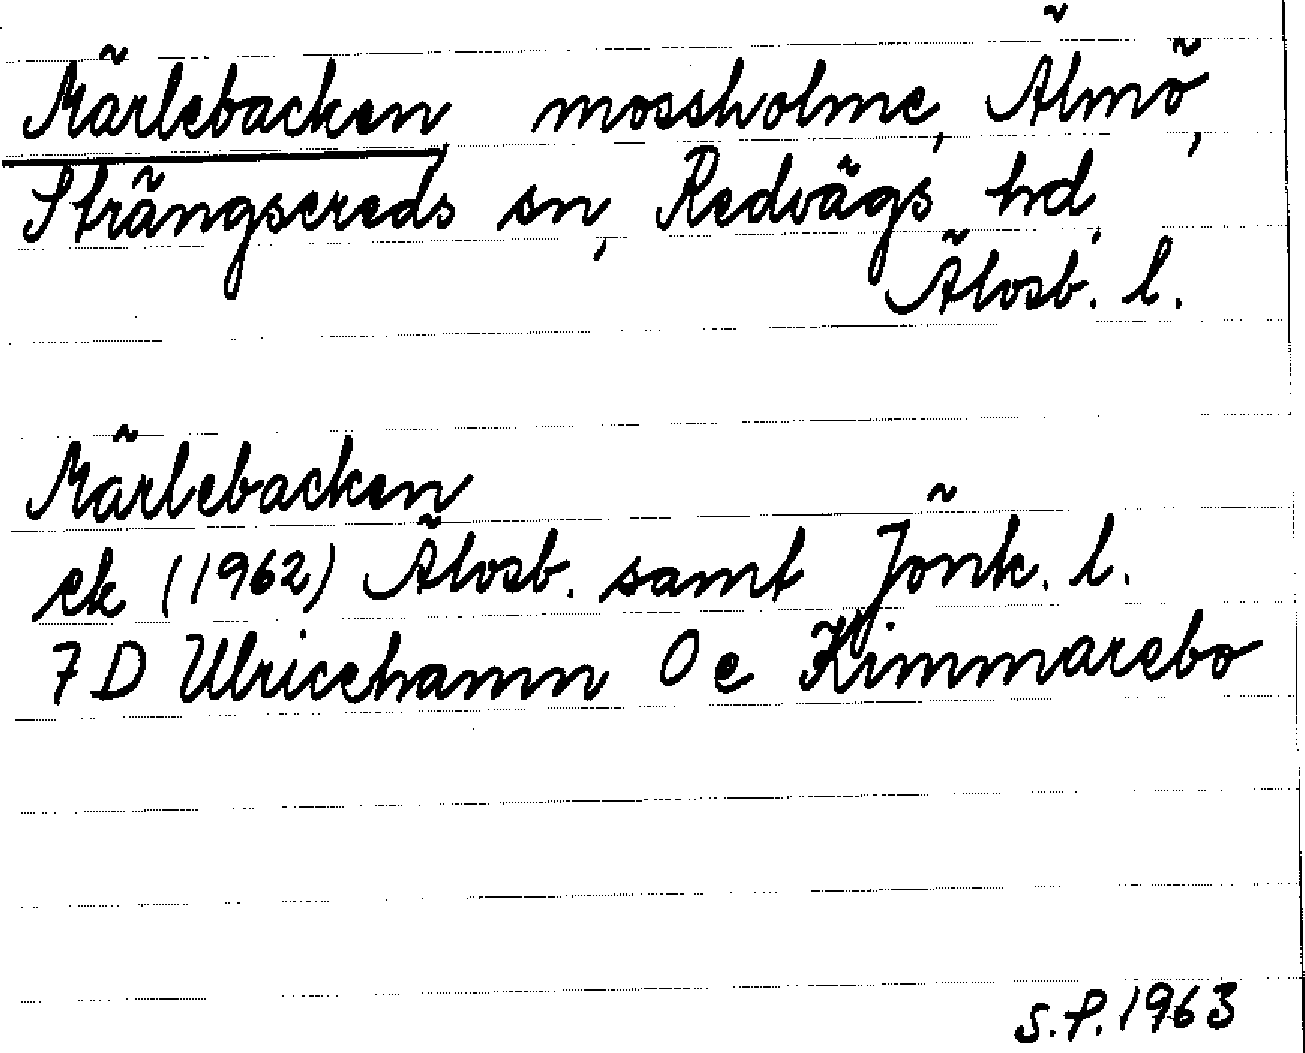 Märlebacken mossholme, Älmö,
Strängsereds sn, Redvägs hd,
Älvsb. l.
Märlebacken
ek (1962) Älvsb. samt Jönk. l.
7 D Ulricehamn 0 e Kimmarebo
S.P. 1963